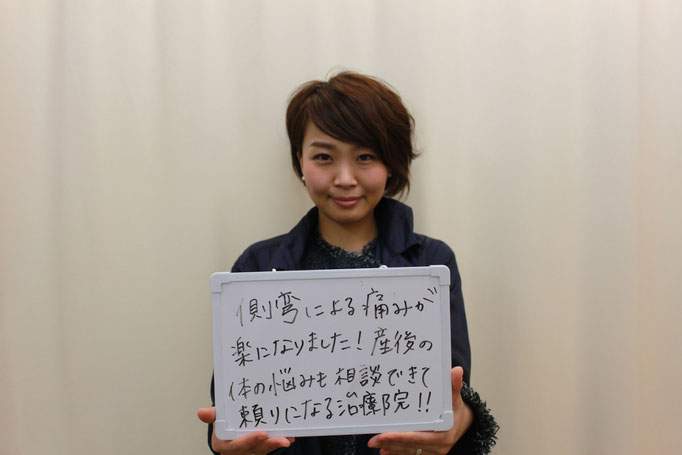 側弯による痛みが
楽になりました！産後の
体の悩みも相談できて
頼りになる治療院！！